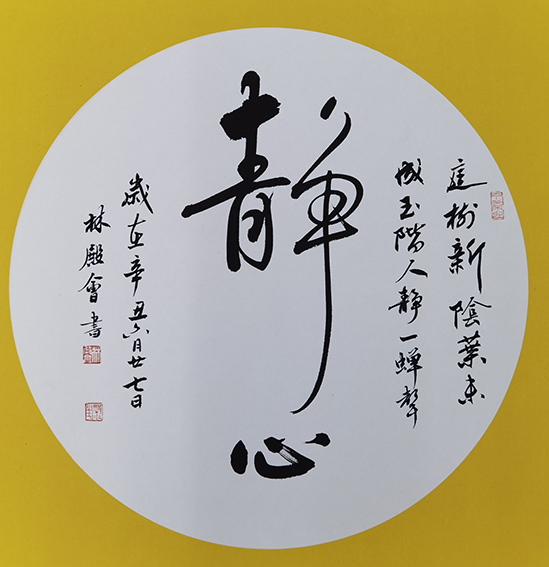 庭樹新陰葉未
成玉階人靜一蟬聲
靜心
歲在辛丑六月廿七日
林殿會書